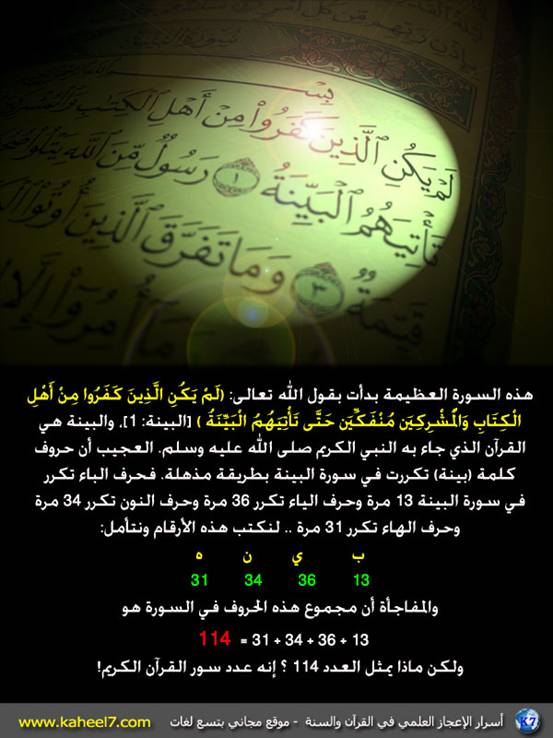 بِسْـــ
لَمْ يَكُنِ الَّذِينَ كَفَرُوا۟ مِنْ أَهْلِ الْكِتَٰبِ
تَأْتِيَهُمُ الْبَيِّنَةُ ١ رَسُولٌ مِّنَ اللَّهِ يَتْلُوا۟
قَيِّمَةٌ ٣ وَمَا تَفَرَّقَ الَّذِينَ أُوتُوا۟
مَآ أُمِرُوٓا۟ إِلَّا
هذه السورة العظيمة بدأت بقول الله تعالى: (لَمْ يَكُنِ الَّذِينَ كَفَرُوا مِنْ أَهْلِ
الْكِتَابِ وَالْمُشْرِكِينَ مُنْفَكِّينَ حَتَّى تَأْتِيَهُمُ الْبَيِّنَةُ) [البينة: 1]، والبينة هي
القرآن الذي جاء به النبي الكريم صلى الله عليه وسلم. العجيب أن حروف
كلمة (بينة) تكررت في سورة البينة بطريقة مذهلة. فحرف الباء تكرر
في سورة البينة 13 مرة وحرف الياء تكرر 36 مرة وحرف النون تكرر 34 مرة
وحرف الهاء تكرر 31 مرة .. لنكتب هذه الأرقام ونتأمل:
ب ي ن ه
13 36 34 31
والمفاجأة أن مجموع هذه الحروف في السورة هو
13 + 36 + 34 + 31 = 114
ولكن ماذا يمثل العدد 114 ؟ إنه عدد سور القرآن الكريم!
K7 أسرار الإعجاز العلمي في القرآن والسنة - موقع مجاني بتسع لغات www.kaheel7.com